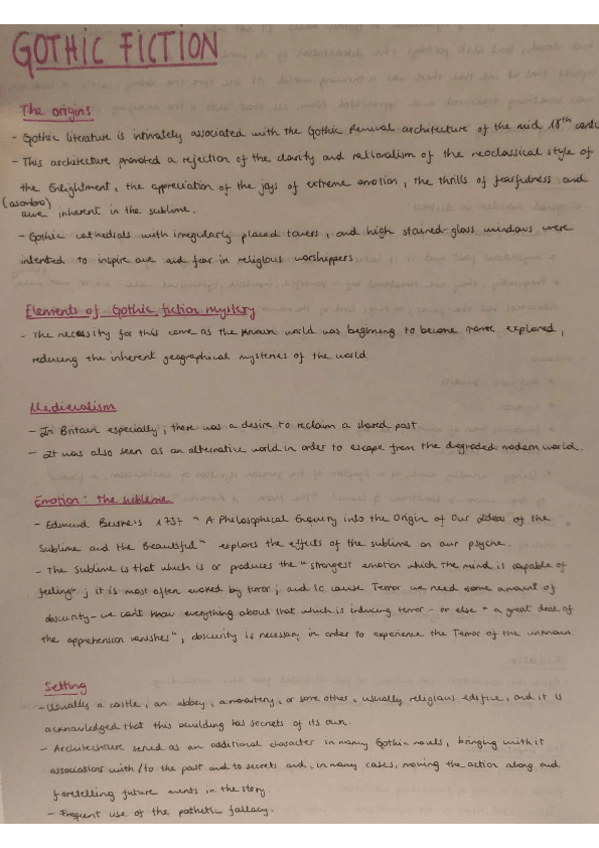 GOTHIC FICTION
The origins
- Gothic literature is intimately associated with the Gothic Revival architecture of the mid 18th
- This architecture promoted a rejection of the clarity and rationalism of the neoclassical style of
the Enlightment, the appreciation of the joys of extreme emotion, the thrills of fearfulness and
(asombro)
awe inherent in the sublime.
- Gothic cathedrals with irregularly placed towers, and high stained-glass windows were
intended to inspire awe and fear in religious worshippers
Elements of Gothic fiction mystery
- The necessity for this came as the known world was beginning to become more explored,
reducing the inherent geographical mysteries of the world
Medievalism
- In Britain especially, there was a desire to reclaim a shared past.
- It was also seen as an alternative world in order to escape from the degraded modern world.
Emotion: the sublime
- Edmund 1757 "A Philosophical Enquiry into the Origin of Our Ideas of the
Sublime and the Beautiful" explors the effects of the sublime on our psyche.
- The Sublime is that which is or produces the "strongest emotion which the mind is capable of
feeling"; it is most often evoked by terror; and to cause Terror we need some amount of
obscurity - we can't know everything about that which is inducing terror - or else "a great deal of
the apprehension vanishes", obscurity is necessary in order to experience the Terror of the unknown.
Setting
- Usually a castle, an abbey, a monastery, or some other, usually religious edifice, and it is
acknowledged that this building has secrets of its own.
- Architecture served as an additional character in many Gothic novels, bringing with it
associations with/to the past and to secrets and, in many cases, moving the action along and
foretelling future events in the story.
- Frequent use of the pathetic fallacy.